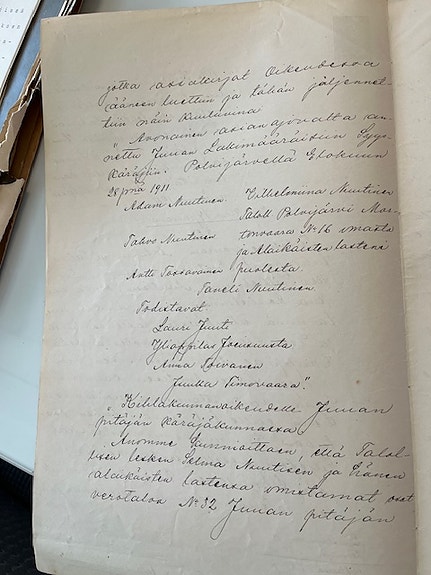 jotka asiakirjat Oikeudessa
ääneen luettiin ja tähän jäljennet-
tiin näin kuuluvina
„ Avonainen asianajovalta an-
nettu Juuan Lakimääräisiin Syys-
Käräjiin. Polvijärvellä Elokuun
28 pnä 1911.
Adam Nuutinen. Vilhelmiina Nuutinen
Talosta Polvijärvi Mar-
Tahvo Nuutinen tonvaara No 16 omasta
ja Alaikäisten lasteni
Antti Tossavainen puolesta.
Taneli Nuutinen
Todistavat
Lauri
Ylioppilas Joensuusta
Anna Toivanen
Juukka Timovaara."
„ Kihlakunnanoikeudelle Juuan
pitäjän käräjäkunnassa
Anomme kunnioittaen, että Talol-
lisen lesken Selma Nuutisen ja Hänen
alaikäisten lastensa omistamat osat
verotaloa No 32 Juuan pitäjän